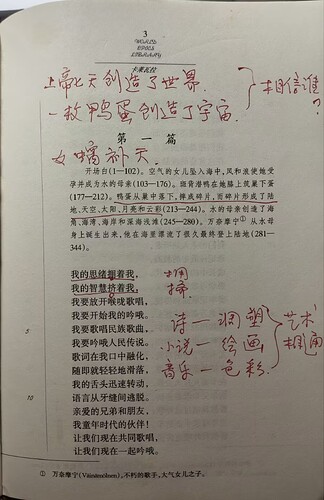 3
WORLD
EPICS
LIBRARY
卡莱瓦拉
上帝七天创造了世界.
相信谁?
一枚鸭蛋创造了宇宙.
第一篇
女娲补天.
开场白(1—102)。空气的女儿坠入海中,风和浪使她受
孕并成为水的母亲(103—176)。斑背潜鸭在她膝上筑巢下蛋
(177—212)。鸭蛋从巢中落下,摔成碎片,而碎片形成了陆
地、天空、太阳、月亮和云彩(213—244)。水的母亲创造了海
角、海湾、海岸和深海浅滩(245—280)。万奈摩宁①从水母
身上诞生出来,他在海里漂流了很久最终登上陆地(281—
344)。
我的思绪拥着我,
我的智慧挤着我,
我要放开喉咙歌唱,
我要开始我的吟哦。
5 我要歌唱民族歌曲,
我要吟哦人民传说。
歌词在我口中融化,
随即就轻轻地滑落,
我的舌头迅速转动,
10 语言从牙缝间逃脱。
亲爱的兄弟和朋友,
我童年时代的伙伴!
让我们现在共同歌唱,
让我们现在一起吟哦。
诗—雕塑
小说—绘画
音乐—色彩.
艺术
相通
① 万奈摩宁(Väinämöinen),不朽的歌手,大气女儿之子。